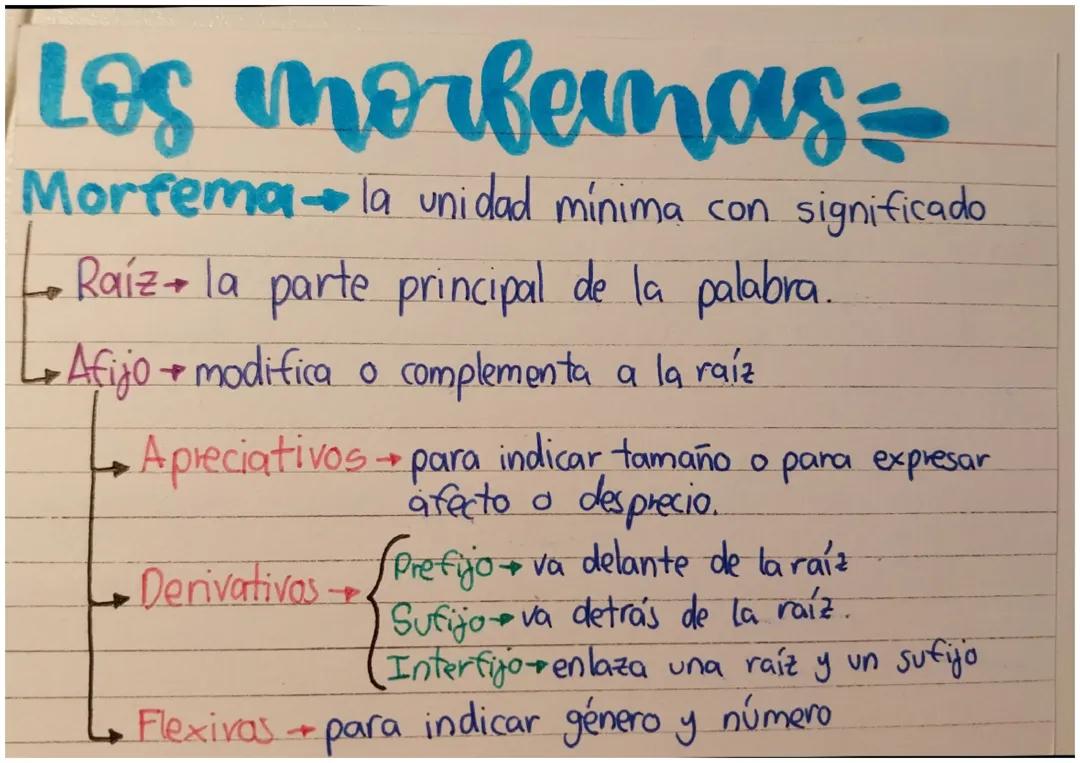 Los morfemas
Morfema→ la unidad mínima con significado
Raíz→ la parte principal de la palabra.
Afijo→ modifica o complementa a la raíz
Apreciativos→ para indicar tamaño o para expresar
afecto o desprecio.
Derivativos→
Prefijo→ va delante de la raíz
Sufijo→ va detrás de la raíz.
Interfijo→ enlaza una raíz y un sufijo
Flexivos→ para indicar género y número